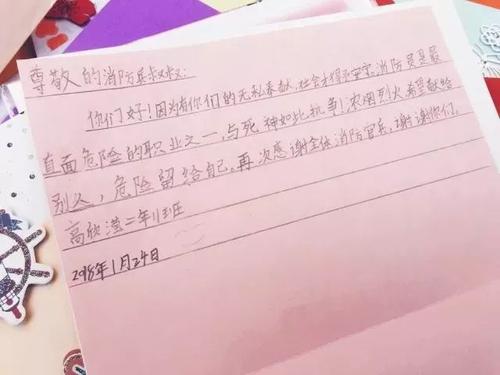 尊敬的消防员叔叔:
你们好!因为有你们的无私奉献,社会才得以安宝,消防员是最
直面危险的职业之一,与死神如此抗争!浓烟烈火,希望献给
别人,危险留给自己,再次感谢全体消防官兵,谢谢你们。
高欣滢二年级1班
2018年1月24日